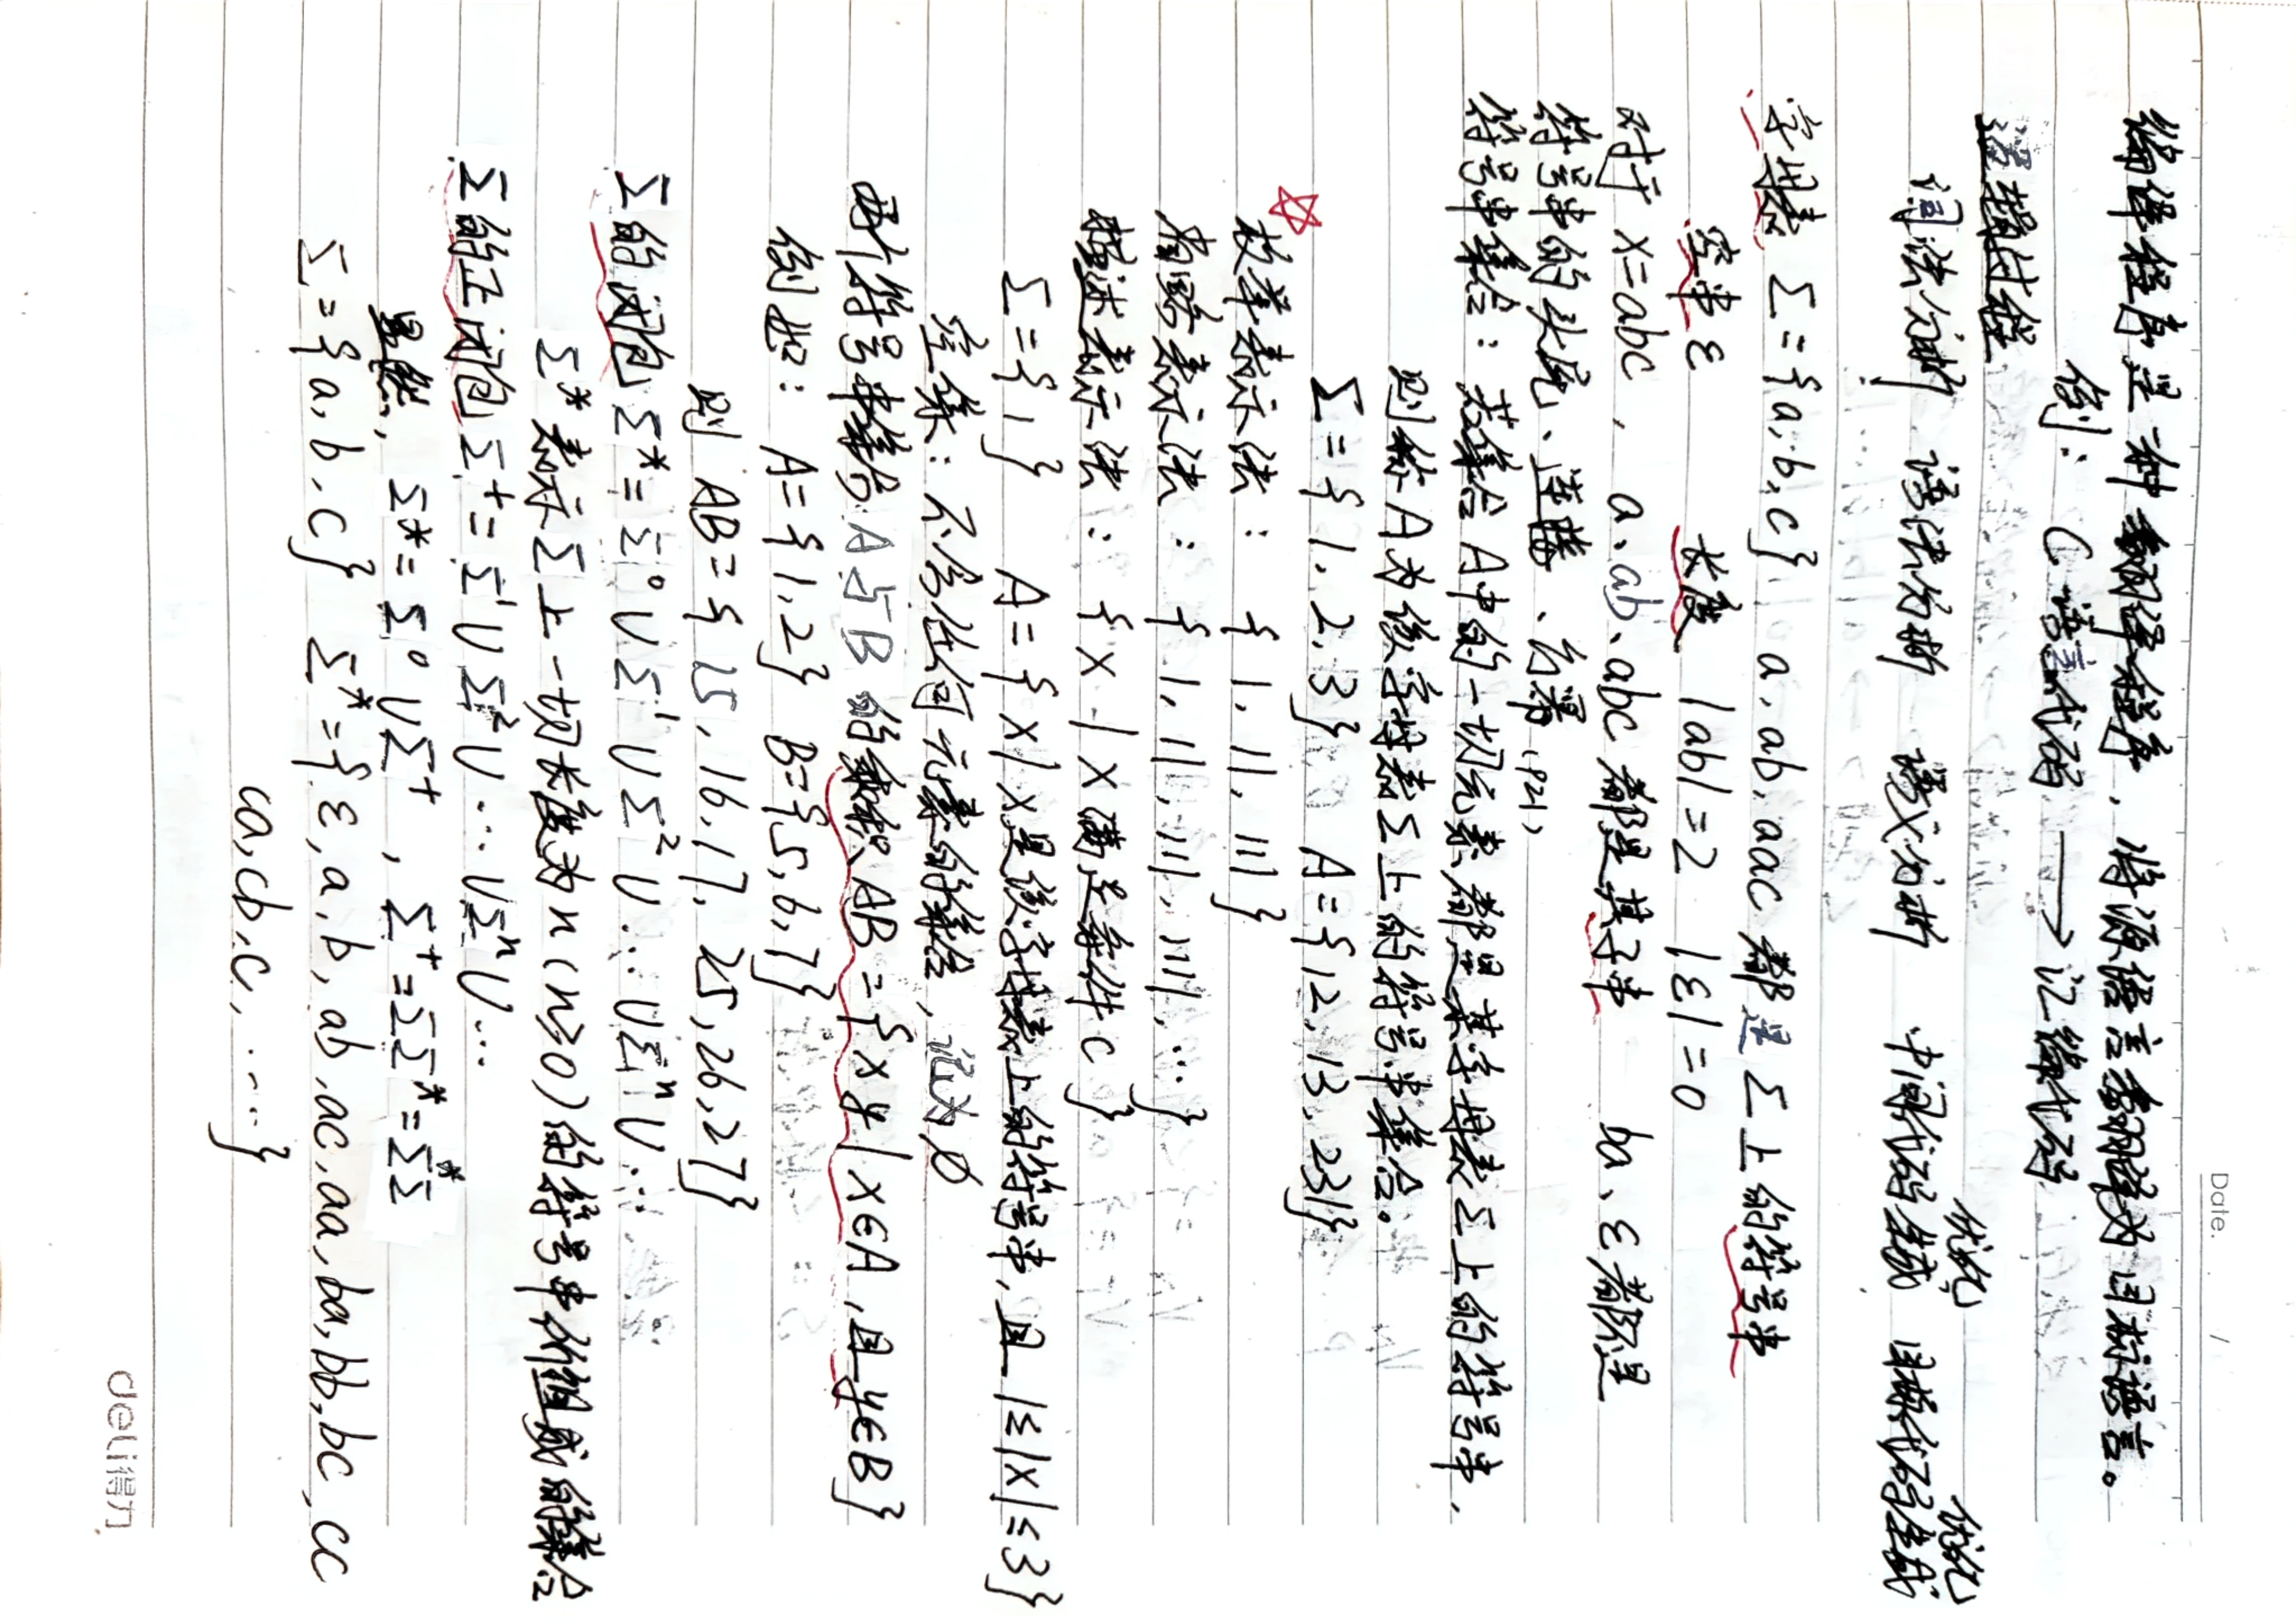 Date. /
编译程序是一种翻译程序，将源语言翻译为目标语言。
例： C语言代码 ⟶ 汇编代码
逻辑过程
优化 优化
词法分析 语法分析 语义分析 中间代码生成 目标代码生成
字母表 Σ={a,b,c} a，ab，aac 都是Σ上的符号串
空串 ε 长度 |ab|=2 |ε|=0
对于 x=abc ， a、ab、abc 都是其子串 ba、ε都不是
符号串的头尾、连接、方幂（P21）
符号串集合：若集合A中的一切元素都是某字母表Σ上的符号串，
则称A为该字母表Σ上的符号串集合。
Σ={1，2，3} A={12，13，231}
☆
枚举表示法： {1，11，111}
省略表示法： {1，11，111，1111，…}
描述表示法： {x | x满足条件C}
Σ={1} A={x|x是该字母表上的符号串，且 1≤|x|≤3}
空集：不含任何元素的集合，记为∅
两个符号串集合 A与B 的乘积AB={xy|x∈A，且y∈B}
例如： A={1,2} B={5,6,7}
则 AB={15，16，17，25，26，27}
Σ的闭包Σ*=Σ⁰∪Σ¹∪Σ²∪…∪Σⁿ∪…
Σ*表示Σ上一切长度为n（n≥0）的符号串所组成的集合
Σ的正闭包Σ⁺=Σ¹∪Σ²∪…∪Σⁿ∪…
显然，Σ*=Σ⁰∪Σ⁺ ，Σ⁺=ΣΣ*=Σ*Σ
Σ={a，b，c} Σ*={ε，a，b，ab，ac，aa，ba，bb，bc，cc
ca，cb，c，…}
deli得力